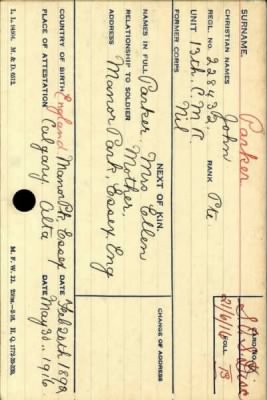 SURNAME. Parker
CARD NO.
S.O.S. Disc
CHRISTIAN NAMES John
21/6/16 FOLL.
REGL. NO. 228432. RANK Pte.
UNIT 13th. C. M. R.
FORMER CORPS Nil
NEXT OF KIN. CHANGE OF ADDRESS
NAMES IN FULL Parker. Mrs Ellen
RELATIONSHIP TO SOLDIER Mother.
ADDRESS Manor Park, Essex, Eng
COUNTRY OF BIRTH England Manor Pk, Essex DATE Feb 20th 1892
PLACE OF ATTESTATION Calgary Alta DATE May 30., 1916.
M. F. W. 22.